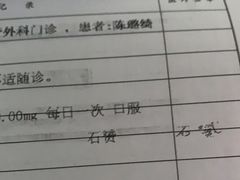 记 录
外科门诊，患者：陈璐绮
适随诊。
.00mg 每日 一次 口服
石赟